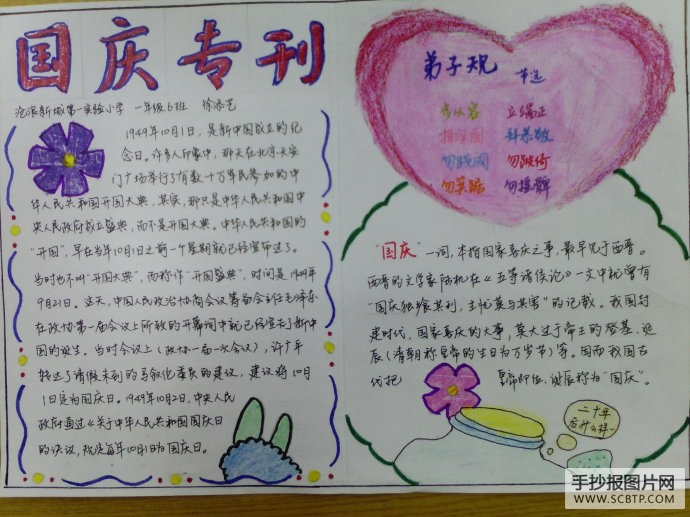 国庆专刊
沧浪新城第一实验小学 一年级6班 徐添艺
1949年10月1日,是新中国成立的纪
念日。许多人印象中,那天在北京天安
门广场举行了有数十万军民参加的中
华人民共和国开国大典。其实,那只是中华人民共和国中
央人民政府成立盛典,而不是开国大典。中华人民共和国的
"开国",早在当年10月1日之前一个星期就已经宣布过了。
当时也不叫"开国大典",而称作"开国盛典",时间是1949年
9月21日。这天,中国人民政治协商会议筹备会主任毛泽东
在政协第一届会议上所致的开幕词中就已经宣告了新中
国的诞生。当时会议上(政协一届一次会议),许广平
转达了请假未到的马叙伦委员的建议,建议将10月
1日定为国庆日。1949年10月2日,中央人民
政府通过《关于中华人民共和国国庆日
的决议,规定每年10月1日为国庆日。
弟子规 节选
步从容 立端正
揖深圆 拜恭敬
勿践阈 勿跛倚
勿箕踞 勿摇髀
"国庆"一词,本指国家喜庆之事,最早见于西晋。
西晋的文学家陆机在《五等诸侯论》一文中就曾有
"国庆独飨其利,主忧莫与其害"的记载。我国封
建时代,国家喜庆的大事,莫大过于帝王的登基、诞
辰(清朝称皇帝的生日为万岁节)等。因而我国古
代把 皇帝即位、诞辰称为"国庆"。
二十年
后什么样
手抄报图片网
WWW.SCBTP.COM